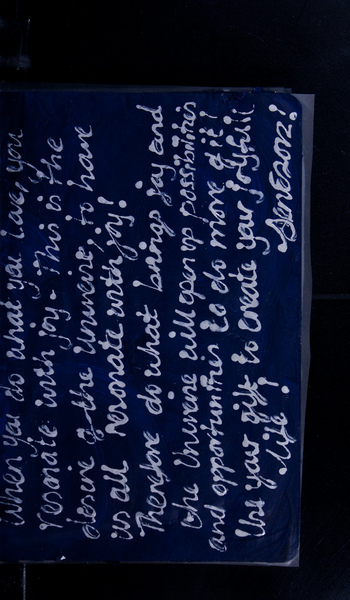 When you do what you love, you
resonate with joy. This is the
desire of the Universe, to have
us all resonate with joy!
Therefore do what brings joy and
the Universe will open up possibilities
and opportunities to do more of it!
Use your gift to create your joyful
life!
2012!